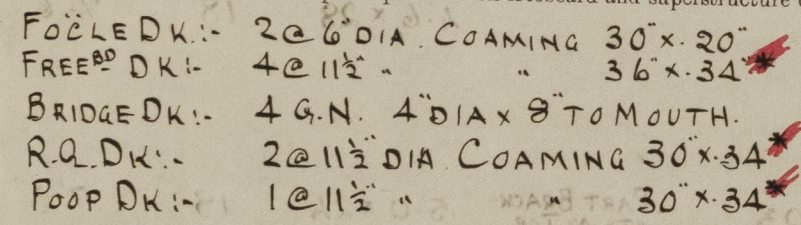 freeboard and superstructure
FOC'LE DK:- 2 @ 6" DIA. COAMING 30" x .20"
FREEBD DK:- 4 @ 11½" " " 36" x .34" *
BRIDGE DK:- 4 G.N. 4" DIA x 8" TO MOUTH.
R.Q.DK:- 2 @ 11½" DIA COAMING 30" x .34" *
POOP DK:- 1 @ 11½" " " 30" x .34" *